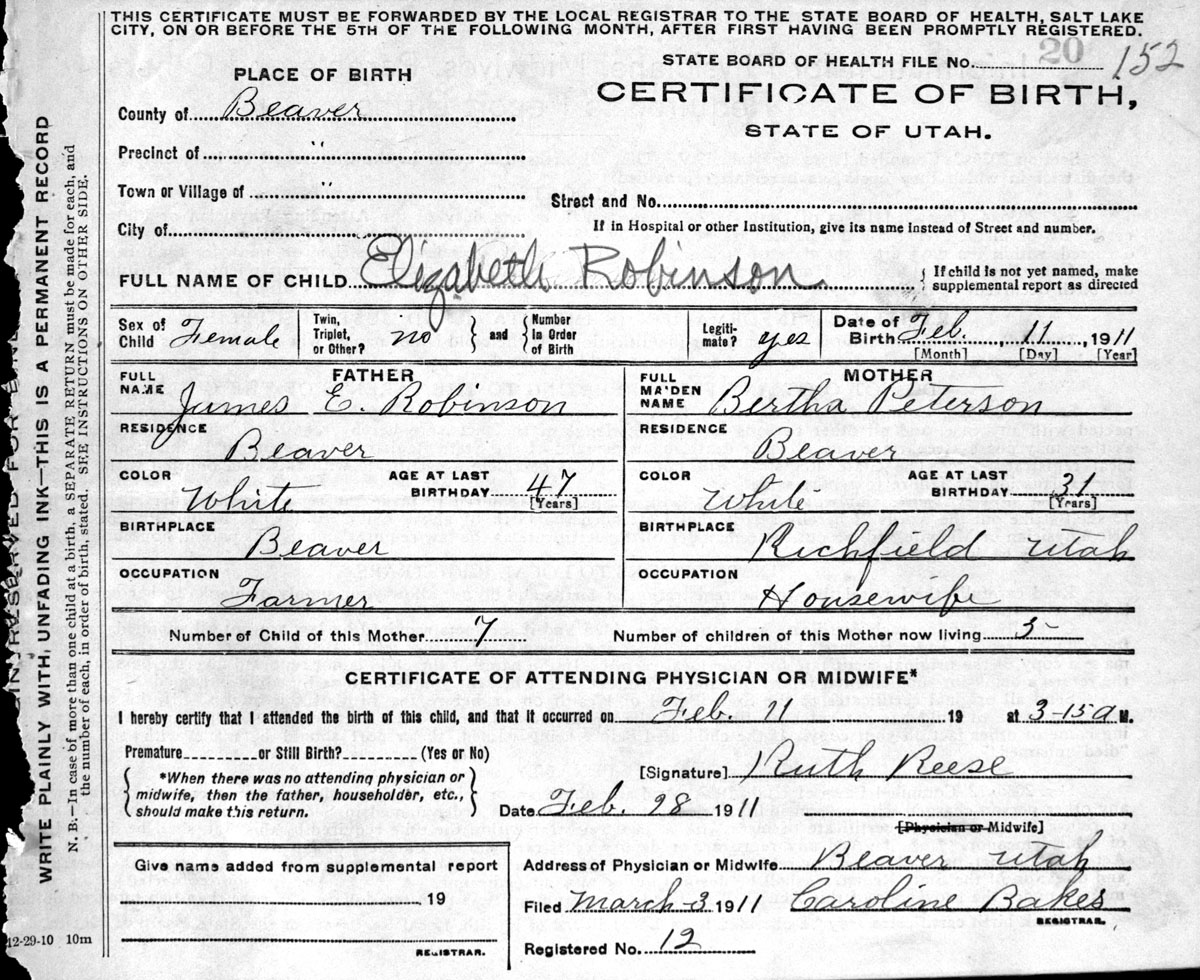 THIS CERTIFICATE MUST BE FORWARDED BY THE LOCAL REGISTRAR TO THE STATE BOARD OF HEALTH, SALT LAKE
CITY, ON OR BEFORE THE 5TH OF THE FOLLOWING MONTH, AFTER FIRST HAVING BEEN PROMPTLY REGISTERED.
STATE BOARD OF HEALTH FILE No. 20 152
PLACE OF BIRTH
CERTIFICATE OF BIRTH,
STATE OF UTAH.
County of Beaver
Precinct of "
Town or Village of "
Street and No.
City of
If in Hospital or other Institution, give its name instead of Street and number.
FULL NAME OF CHILD Elizabeth Robinson
{ If child is not yet named, make
supplemental report as directed
Sex of Child Female
Twin, Triplet, or Other? no } and { Number in Order of Birth
Legiti-mate? yes
Date of Birth Feb. 11 1911
[Month] [Day] [Year]
FATHER
FULL NAME James E. Robinson
RESIDENCE Beaver
COLOR White AGE AT LAST BIRTHDAY 47 [Years]
BIRTHPLACE Beaver
OCCUPATION Farmer
MOTHER
FULL MAIDEN NAME Bertha Peterson
RESIDENCE Beaver
COLOR White AGE AT LAST BIRTHDAY 31 [Years]
BIRTHPLACE Richfield Utah
OCCUPATION Housewife
Number of Child of this Mother 7 Number of children of this Mother now living 5
CERTIFICATE OF ATTENDING PHYSICIAN OR MIDWIFE*
I hereby certify that I attended the birth of this child, and that it occurred on Feb 11 19 at 3-15 a M.
Premature or Still Birth? (Yes or No)
{ *When there was no attending physician or
midwife, then the father, householder, etc.,
should make this return. }
[Signature] Ruth Reese
Date Feb. 28 1911
[Physician or Midwife]
Give name added from supplemental report
19
REGISTRAR.
Address of Physician or Midwife Beaver Utah
Filed March 3 1911 Caroline Bakes
REGISTRAR.
Registered No. 12
12-29-10 10m
WRITE PLAINLY WITH UNFADING INK—THIS IS A PERMANENT RECORD
N. B.—In case of more than one child at a birth, a SEPARATE RETURN must be made for each, and
the number of each, in order of birth, stated. SEE INSTRUCTIONS ON OTHER SIDE.